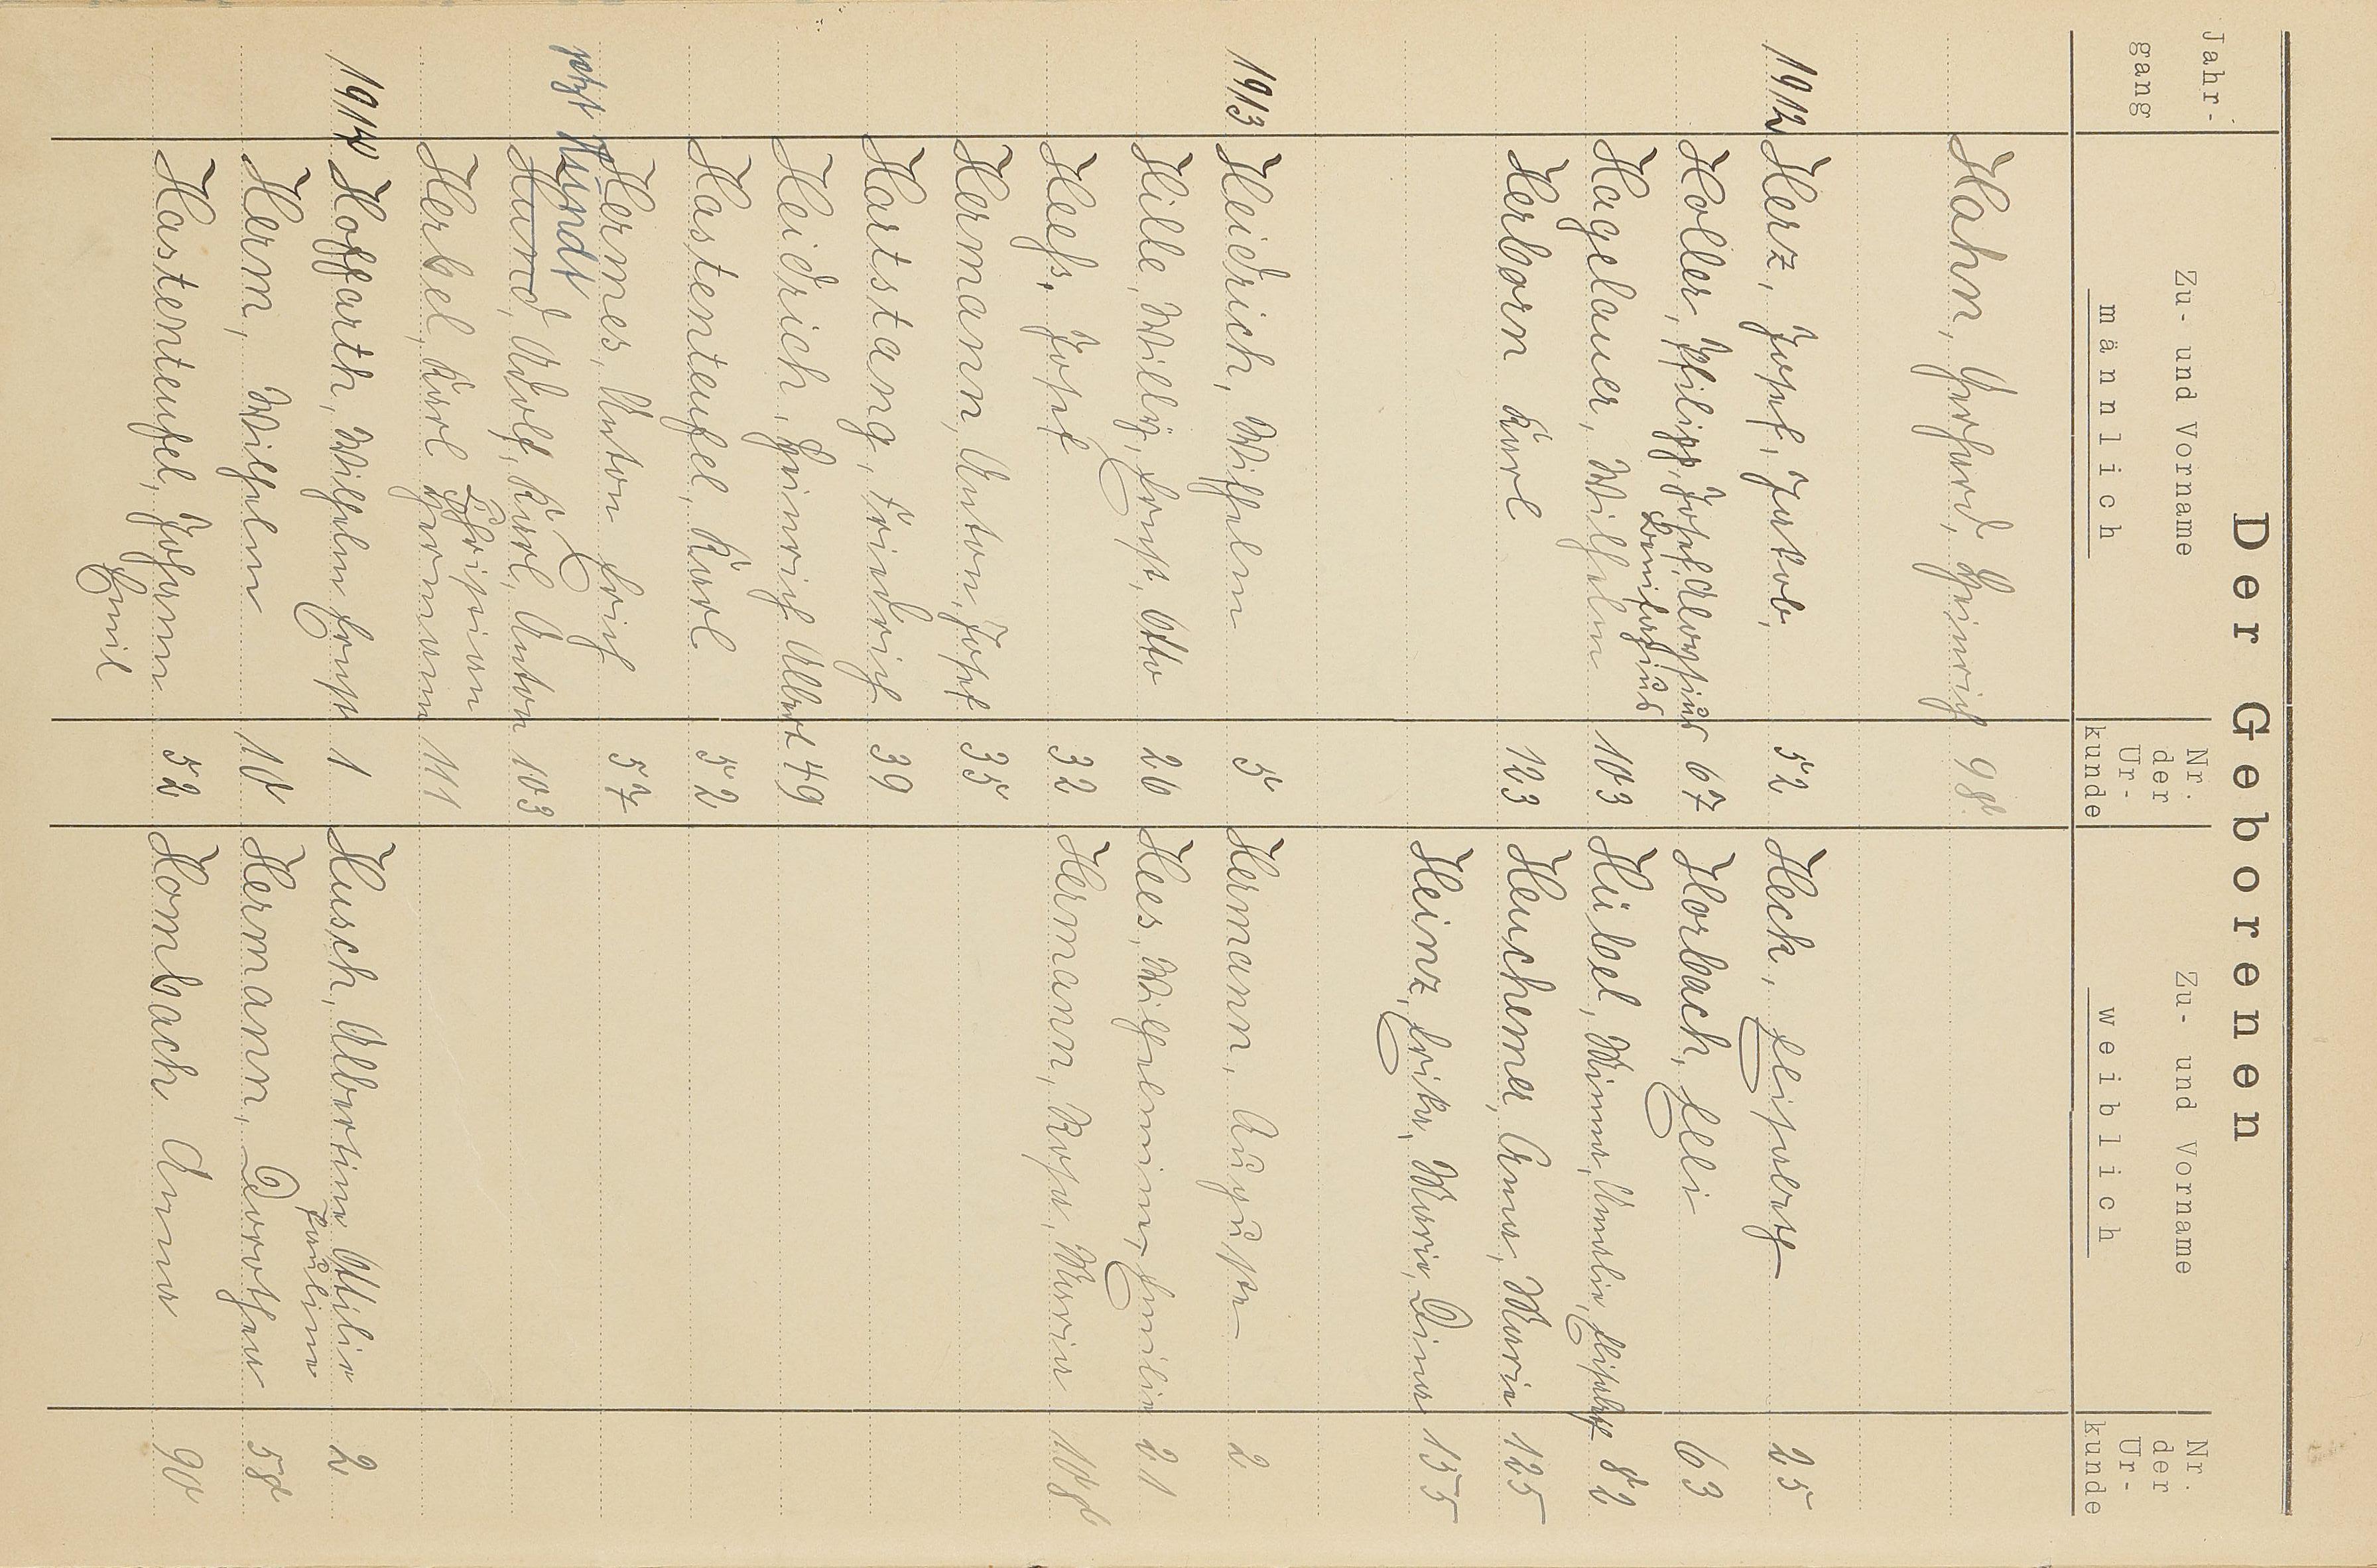 Der Geborenen
Jahr-
gang
Zu- und Vorname
männlich
Nr.
der
Ur-
kunde
Zu- und Vorname
weiblich
Nr.
der
Ur-
kunde
Hahn, Gerhard, Heinrich 98
1912 Herz, Josef, Jakob, 52 Heck, Elisabeth 25
Holler, Philipp, Josef, Aloysius 67 Horbach, Elli 63
Bonifazius
Hagelauer, Wilhelm 103 Hübel, Minna, Amalie, Elisabeth 82
Herborn Karl 123 Heuchemer, Anna, Maria 125
Heinz, Erika, Maria, Dina 155
1913 Heidrich, Wilhelm 5 Hermann, Auguste 2
Hille, Willy, Ernst, Otto 26 Hees, Wilhelmine, Emilie 21
Heeß, Josef 32 Hermann, Rosa, Maria 108
Hermann, Anton, Josef 35
Hartstang, Friedrich 39
Heidrich, Heinrich Albert 49
Hastenteufel, Karl 52
Hermes, Anton Erich 57
jetzt Hundt
Hund, Adolf, Karl, Anton 103
Christian
Herbel, Karl Hermann 111
1914 Hoffarth, Wilhelm Ernst 1 Husch, Albertine Ottilie 2
Pauline
Herm, Wilhelm 10 Hermann, Dorothea 58
Hastenteufel, Johann 52 Hombach Anna 90
Emil